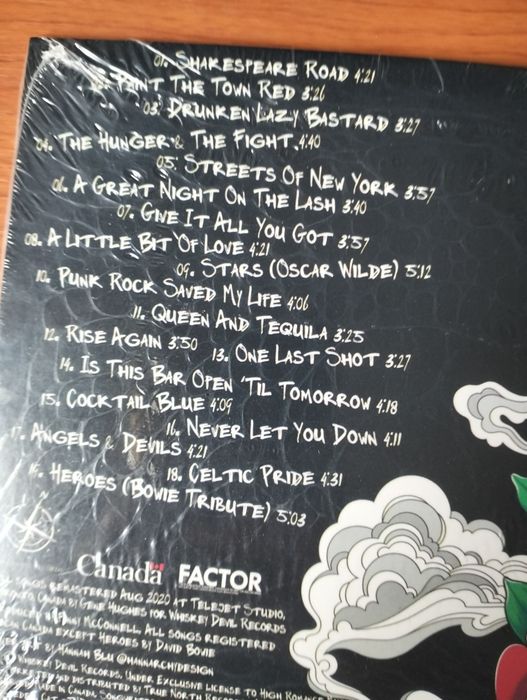 01. Shakespeare Road 4:21
Paint The Town Red 3:26
03. Drunken Lazy Bastard 3:27
04. The Hunger & The Fight 4:40
05. Streets Of New York 3:57
06. A Great Night On The Lash 3:40
07. Give It All You Got 3:57
08. A Little Bit Of Love 4:21
09. Stars (Oscar Wilde) 5:12
10. Punk Rock Saved My Life 4:06
11. Queen And Tequila 3:25
12. Rise Again 3:50
13. One Last Shot 3:27
14. Is This Bar Open 'Til Tomorrow 4:18
15. Cocktail Blue 4:09
16. Never Let You Down 4:11
17. Angels & Devils 4:21
18. Celtic Pride 4:31
Heroes (Bowie Tribute) 5:03
Canada FACTOR
Songs Remastered Aug 2020 at Telejet Studio,
Canada by Gene Hughes for Whiskey Devil Records
McConnell. All songs registered
Canada except Heroes by David Bowie
by Hannah Blu @hannarchydesign
Whiskey Devil Records, under exclusive license to High Romance
and distributed by True North
Made in Canada.